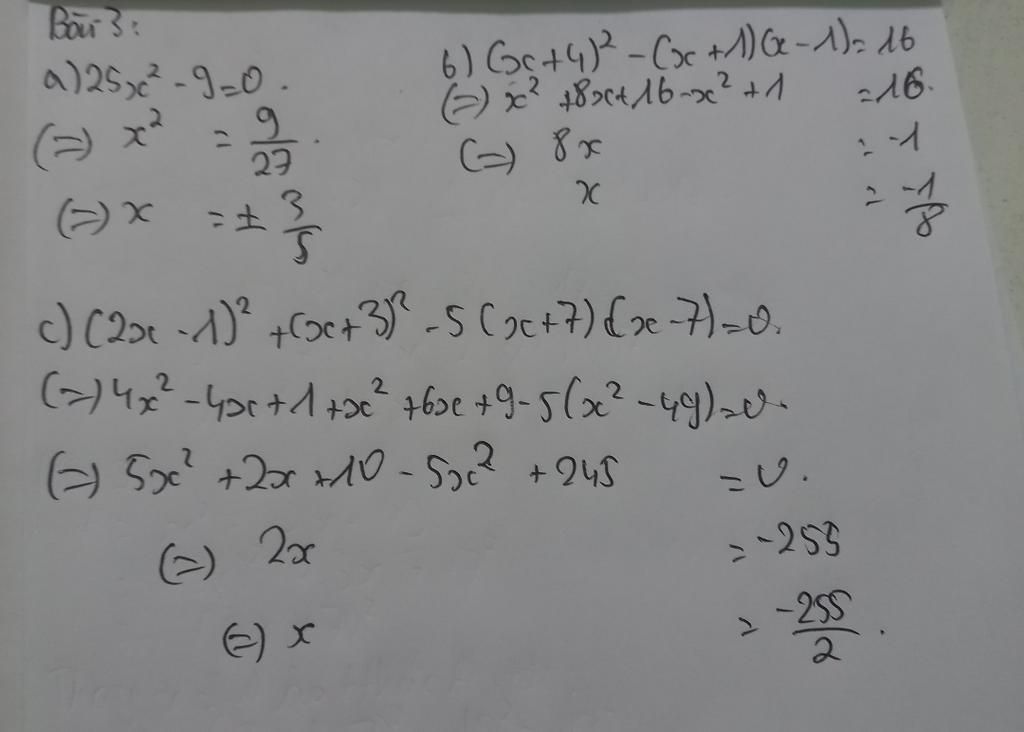 Bài 3:
a) 25x² - 9 = 0.
(=) x² = 9/27.
(=) x = ± 3/5
b) (x+4)² - (x+1)(x-1) = 16
(=) x² + 8x + 16 - x² + 1 = 16.
(=) 8x = -1
x = -1/8
c) (2x - 1)² + (x+3)² - 5(x+7)(x-7) = 0.
(=) 4x² - 4x + 1 + x² + 6x + 9 - 5(x² - 49) = 0.
(=) 5x² + 2x + 10 - 5x² + 245 = 0.
(=) 2x = -255
(=) x = -255/2.